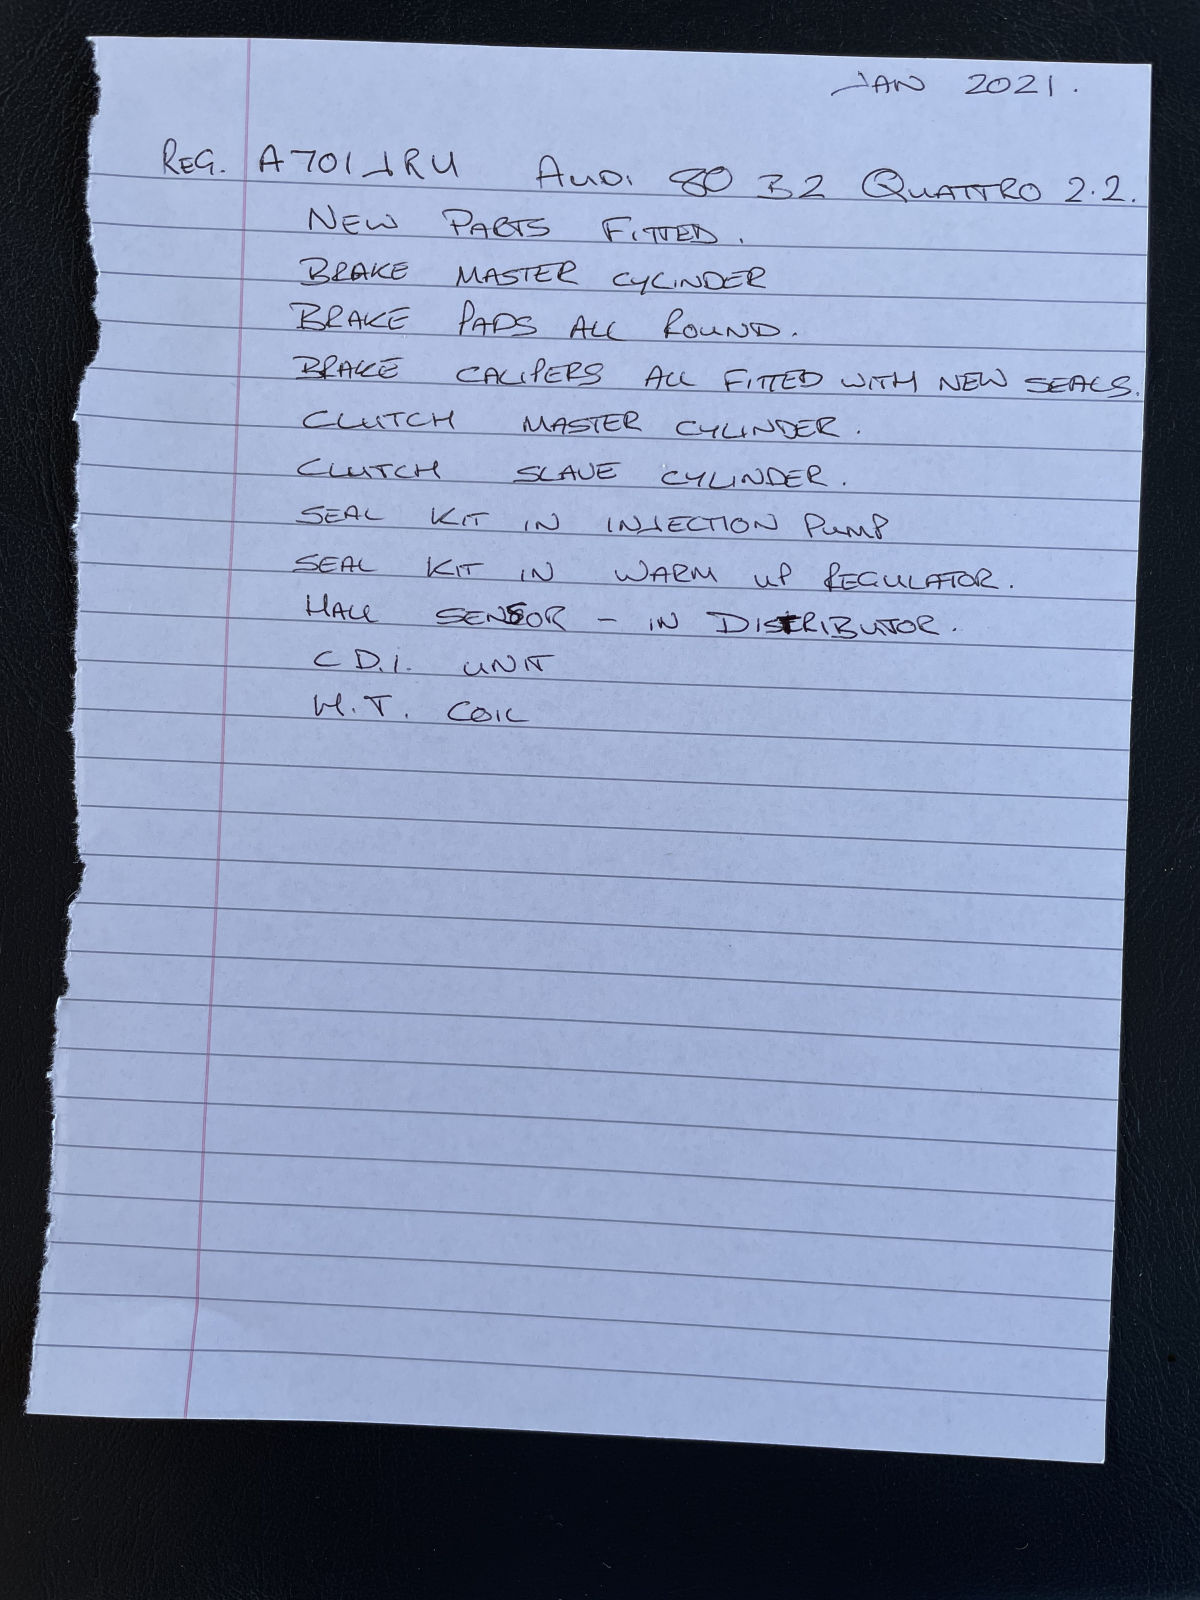 JAN 2021.
REG. A701JRU AUDI 80 B2 QUATTRO 2.2.
NEW PARTS FITTED.
BRAKE MASTER CYLINDER
BRAKE PADS ALL ROUND.
BRAKE CALIPERS ALL FITTED WITH NEW SEALS.
CLUTCH MASTER CYLINDER.
CLUTCH SLAVE CYLINDER.
SEAL KIT IN INJECTION PUMP
SEAL KIT IN WARM UP REGULATOR.
HALL SENSOR - IN DISTRIBUTOR.
C D.I. UNIT
H.T. COIL